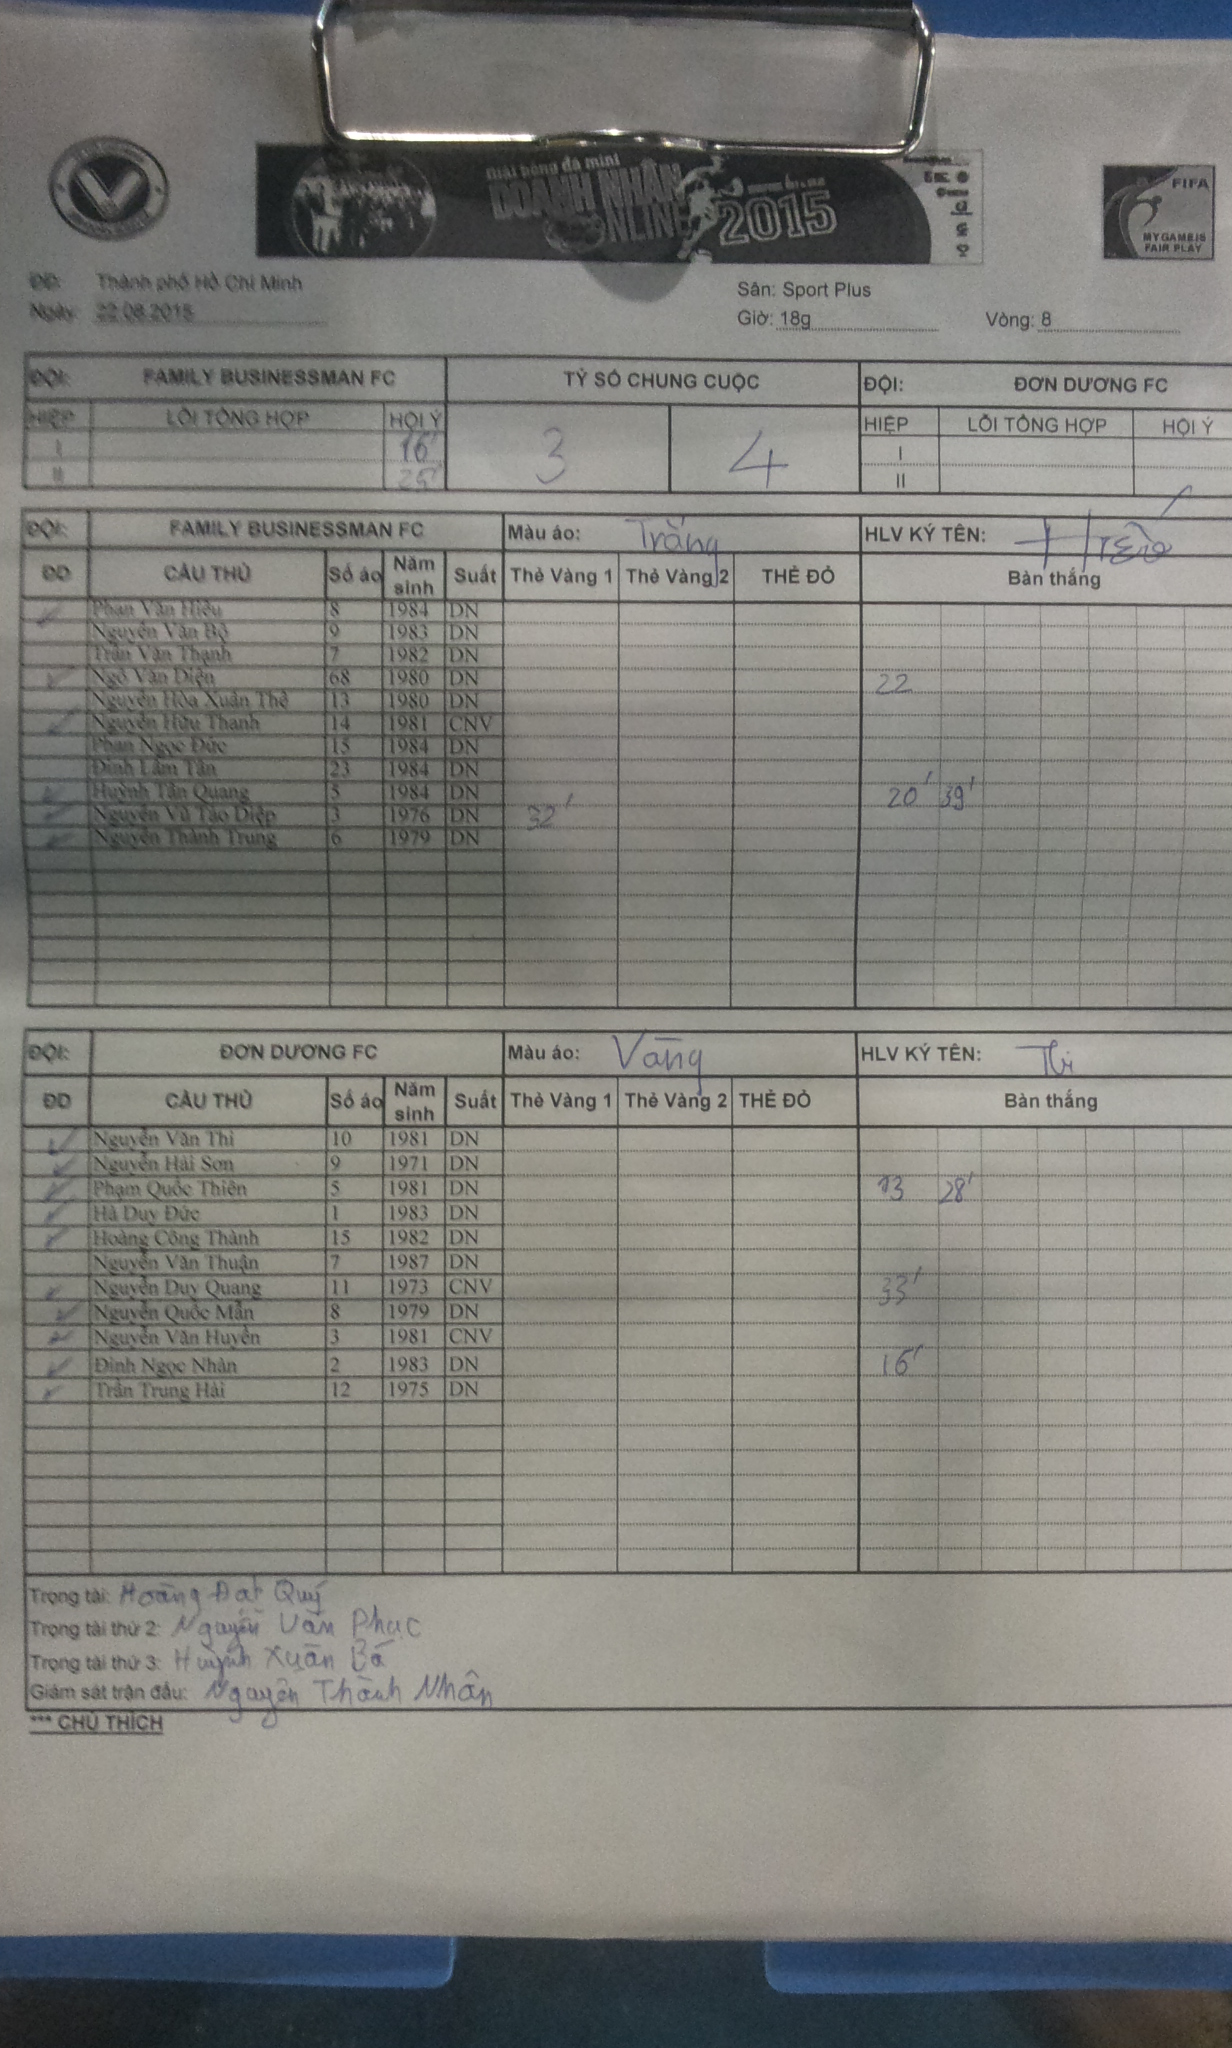 Giải bóng đá mini
DOANH NHÂN
ONLINE 2015
FIFA
MY GAME IS
FAIR PLAY
ĐĐ: Thành phố Hồ Chí Minh
Sân: Sport Plus
Ngày: 22.08.2015
Giờ: 18g Vòng: 8
ĐỘI: FAMILY BUSINESSMAN FC TỶ SỐ CHUNG CUỘC ĐỘI: ĐƠN DƯƠNG FC
HIỆP LỖI TỔNG HỢP HỘI Ý 3 4 HIỆP LỖI TỔNG HỢP HỘI Ý
I 16' I
II 25' II
ĐỘI: FAMILY BUSINESSMAN FC Màu áo: Trắng HLV KÝ TÊN:
ĐD CẦU THỦ Số áo Năm sinh Suất Thẻ Vàng 1 Thẻ Vàng 2 THẺ ĐỎ Bàn thắng
Phan Văn Hiếu 8 1984 DN
Nguyễn Văn Bộ 9 1983 DN
Trần Văn Thạnh 7 1982 DN
Ngô Văn Diện 68 1980 DN 22
Nguyễn Hòa Xuân Thế 13 1980 DN
Nguyễn Hữu Thanh 14 1981 CNV
Phan Ngọc Đức 15 1984 DN
Đinh Lâm Tấn 23 1984 DN
Huỳnh Tấn Quang 5 1984 DN 20' 39'
Nguyễn Vũ Tảo Diệp 3 1976 DN 32'
Nguyễn Thành Trung 6 1979 DN
ĐỘI: ĐƠN DƯƠNG FC Màu áo: Vàng HLV KÝ TÊN: Thi
ĐD CẦU THỦ Số áo Năm sinh Suất Thẻ Vàng 1 Thẻ Vàng 2 THẺ ĐỎ Bàn thắng
Nguyễn Văn Thi 10 1981 DN
Nguyễn Hải Sơn 9 1971 DN
Phạm Quốc Thiên 5 1981 DN 13 28'
Hà Duy Đức 1 1983 DN
Hoàng Công Thành 15 1982 DN
Nguyễn Văn Thuận 7 1987 DN
Nguyễn Duy Quang 11 1973 CNV 33'
Nguyễn Quốc Mẫn 8 1979 DN
Nguyễn Văn Huyền 3 1981 CNV
Đinh Ngọc Nhàn 2 1983 DN 16'
Trần Trung Hải 12 1975 DN
Trọng tài: Hoàng Đạt Quý
Trọng tài thứ 2: Nguyễn Văn Phục
Trọng tài thứ 3: Huỳnh Xuân Bá
Giám sát trận đấu: Nguyễn Thành Nhân
*** CHÚ THÍCH